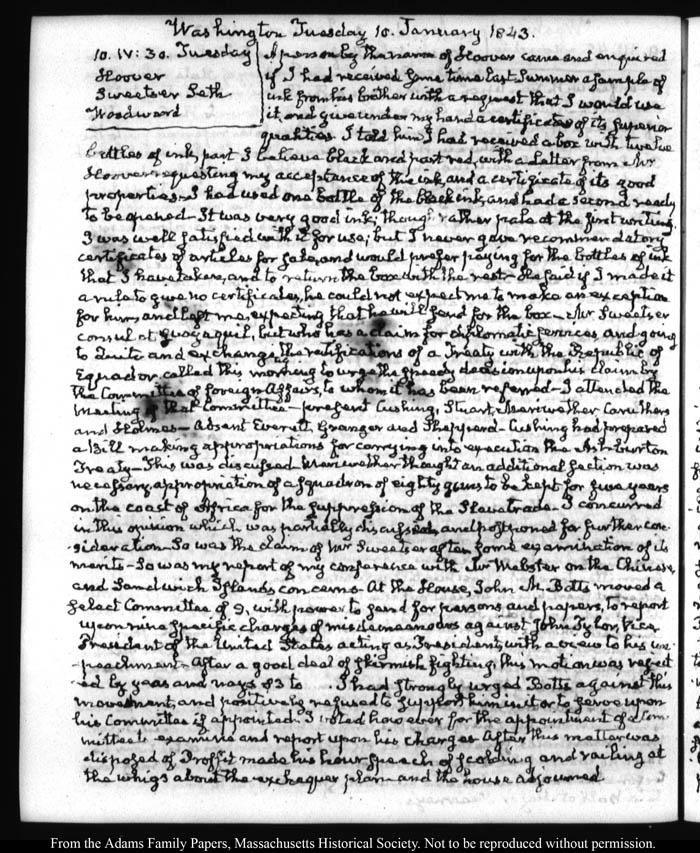 Washington Tuesday 10. January 1843.
10. IV: 30. Tuesday
Hoover
Sweetser Seth
Woodward
A person by the name of Hoover came and enquired
if I had received some time last Summer a sample of
ink from his brother with a request that I would use
it, and give under my hand a certificate of its superior
qualities. I told him I had received a box with twelve
bottles of ink, part I believe black and part red, with a letter from Mr
Hoover requesting my acceptance of the ink, and a certificate of its good
properties. I had used one bottle of the black ink, and had a second ready
to be opened. It was very good ink; though rather pale at the first writing.
I was well satisfied with it for use; but I never gave recommendatory
certificates of articles for sale, and would prefer paying for the bottles of ink
that I have taken, and to return the box with the rest. He said if I made it
a rule to give no certificates, he could not expect me to make an exception
for him, and left me, expecting that he will send for the box. Mr Sweetser
consul at Guayaquil, but who has a claim for diplomatic services, and going
to Quito and exchange the ratifications of a Treaty with the Republic of
Equador called this morning to urge the speedy decision upon his claim by
the Committee of foreign Affairs, to whom it has been referred. I attended the
meeting of that Committee - present Cushing, Stuart, Meriwether Caruthers
and Holmes - Absent Everett, Granger and Shepperd. Cushing had prepared
a Bill making appropriations for carrying into execution the Ashburton
Treaty - This was discussed. Meriwether thought an additional section was
necessary, appropriation of a squadron of eighty guns to be kept for five years
on the coast of Africa for the suppression of the Slave trade. I concurred
in this opinion which was partially discussed, and postponed for further con-
sideration. So was the claim of Mr Sweetser after some examination of its
merits - So was my report of my conference with Mr Webster on the Chinese
and Sandwich Islands concerns. At the House, John M. Botts moved a
select Committee of 9, with power to send for persons and papers, to report
upon nine specific charges of misdemeanours against John Tyler, Vice
President of the United States acting as President, with a view to his im-
peachment. After a good deal of skirmish fighting, this motion was reject
ed by yeas and nays 83 to . I had strongly urged Botts against this
movement, and positively refused to support him in it or to serve upon
his Committee if appointed. I voted however for the appointment of a Com-
mittee to examine and report upon his charges. After this matter was
disposed of Proffit made his hour speech of scolding and railing at
the whigs about the exchequer plan and the house adjourned.
From the Adams Family Papers, Massachusetts Historical Society. Not to be reproduced without permission.